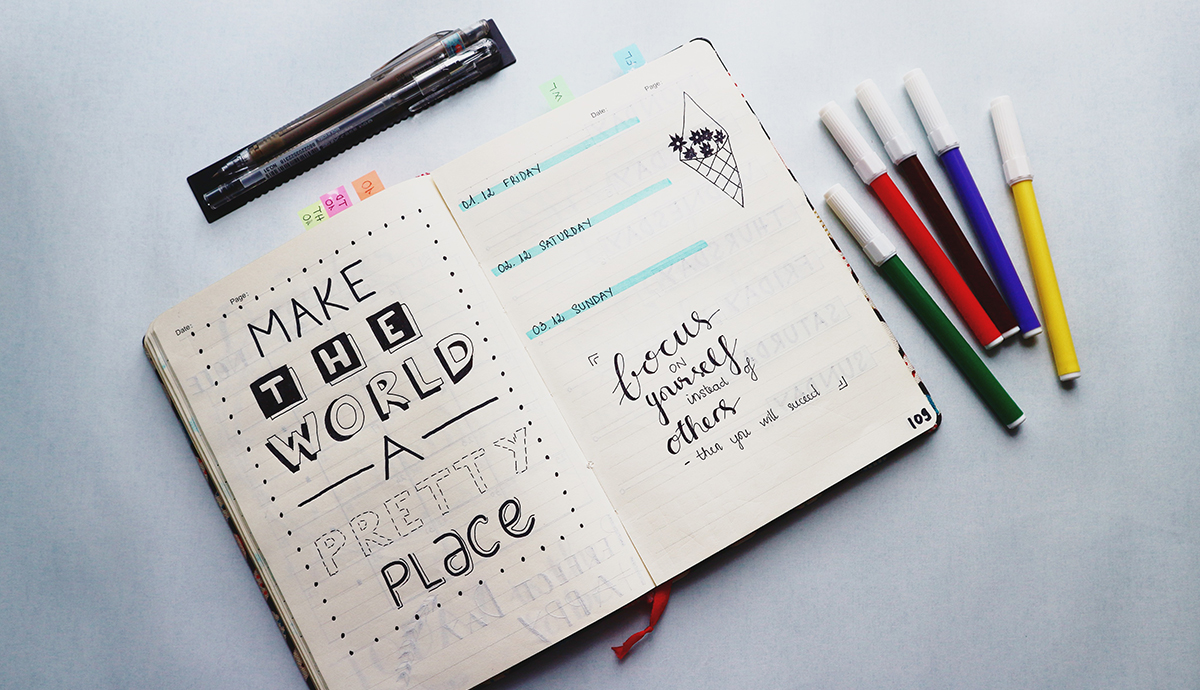 Date:
Page:
MAKE
THE
WORLD
A
PRETTY
PLACE
Date:
Page:
01.12 FRIDAY
02.12 SATURDAY
03.12 SUNDAY
focus
ON
yourself
instead of
others
- then you will succeed
109